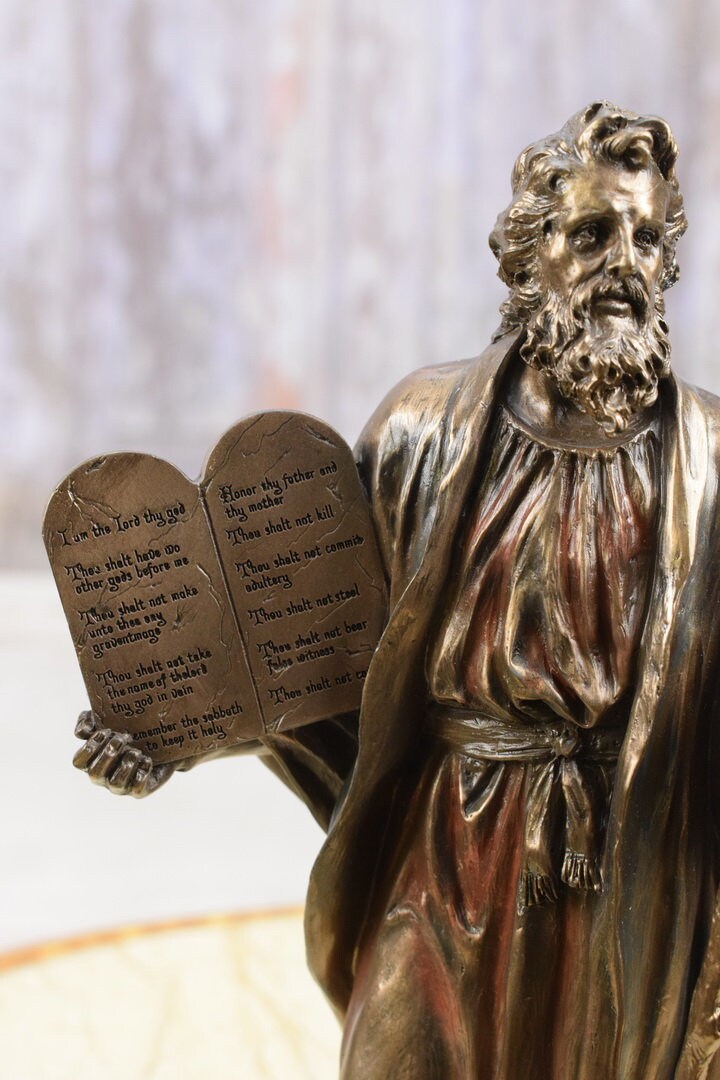 I am the Lord thy god
Thou shalt have no
other gods before me
Thou shalt not make
unto thee any
graventmage
Thou shalt not take
the name of thelord
thy god in vain
emember the sabbath
to keep it holy
Honor thy father and
thy mother
Thou shalt not kill
Thou shalt not commit
adultery
Thou shalt not steal
Thou shalt not bear
false witness
Thou shalt not